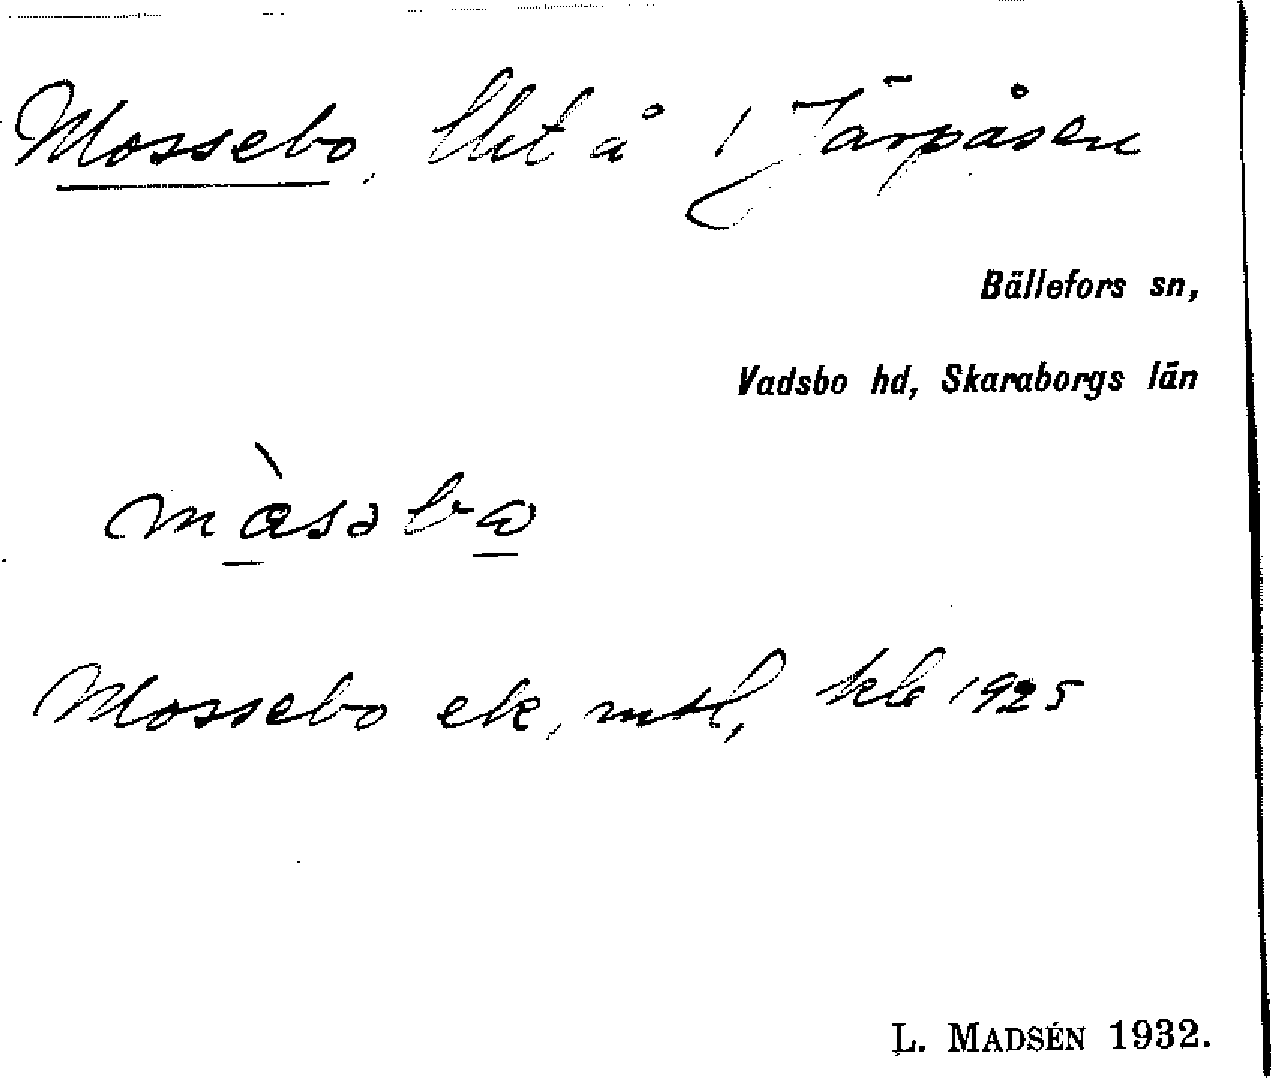 Mossebo, lht å 1 Järpåsen
Bällefors sn,
Vadsbo hd, Skaraborgs län
mòsəbω
Mossebo ek, mtl, kb 1925
L. MADSÉN 1932.